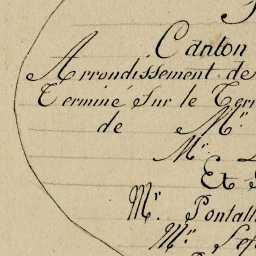 Canton
Arrondissement de
Terminé sur le Terr
de Mr.
Mr.
Et
Mr. Pontall
Mr. Lef